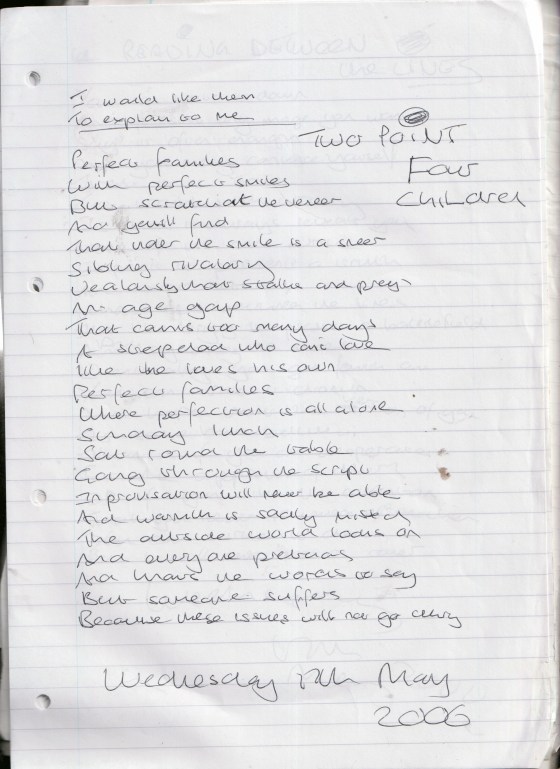 I would like them
To explain to me
TWO POINT
Four
Children
Perfect families
With perfect smiles
But scratch at the veneer
And you'll find
That under the smile is a sneer
Sibling rivalry
Jealousy that stalks and preys
An age gap
That carries too many days
A stepdad who can't love
like he loves his own
Perfect families
Where perfection is all alone
Sunday lunch
Sat round the table
Going through the script
Improvisation will never be able
And warmth is sadly missed
The outside world looks on
And everyone pretends
And knows the words to say
But someone suffers
Because these issues will not go away
Wednesday 17th May
2006